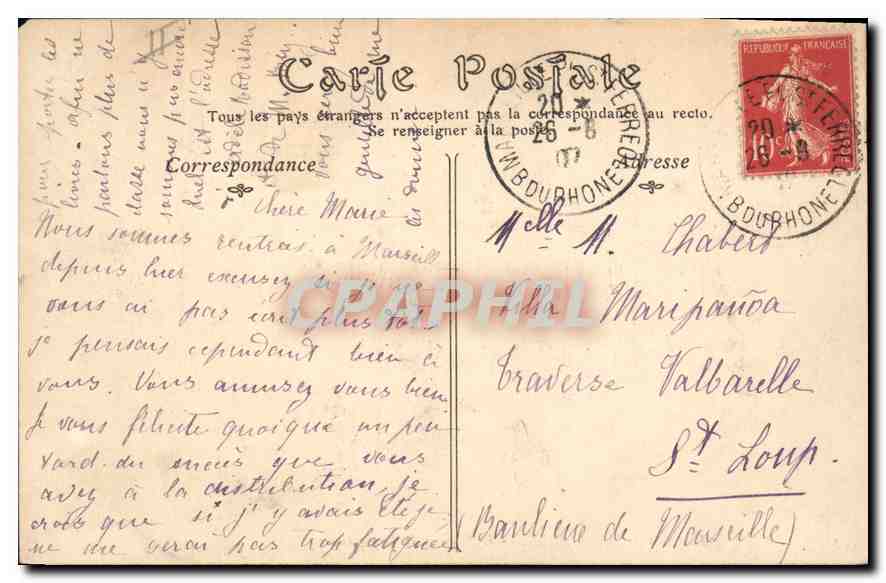 Carte Postale
Tous les pays étrangers n'acceptent pas la correspondance au recto.
Se renseigner à la poste
Correspondance
Adresse
REPUBLIQUE FRANÇAISE
10c
20 *
26 -8
07
BOUR HONE
20 *
26 -8
BOUR HONE
Chère Marie
Nous sommes rentrés à Marseill
depuis hier excusez si je ne
vous ai pas écrit plus tôt
je pensais cependant bien à
vous. Vous amusez vous bien
Je vous félicite quoique un peu
tard du succès que vous
avez à la distribution, je
crois que si j'y avais été je
ne me serai pas trop fatiguée
pour porter les
livres - afin ne
parlons plus de
classe nous n
sommes pas encore
Quel est l'adresse
Melle M. Chabert
Villa Maripanoa
Traverse Valbarelle
St Loup.
(Banlieue de Marseille)
CPAPHIL